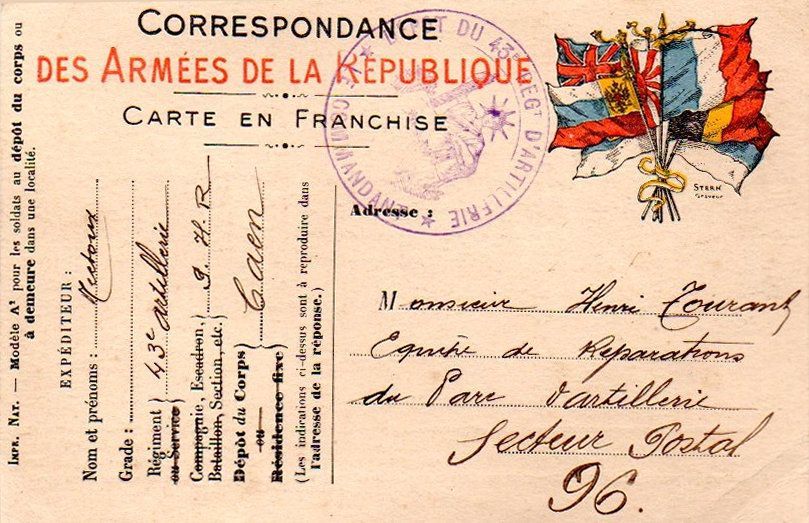 CORRESPONDANCE
DES ARMÉES DE LA RÉPUBLIQUE
CARTE EN FRANCHISE
DÉPÔT DU 43e REGt D'ARTILLERIE
COMMANDANT
STERN
Graveur
Adresse :
Monsieur Henri Tourant
Equipe de Reparations
du Parc d'artillerie
Secteur Postal
96.
IMPR. NAT. — Modèle A1 pour les soldats au dépôt du corps ou
à demeure dans une localité.
EXPÉDITEUR :
Nom et prénoms :
Grade :
Régiment } 43e artillerie
ou Service
Compagnie, Escadron, } P. H. R
Bataillon, Section, etc.
Dépôt du Corps } Caen
ou
Résidence fixe
(Les indications ci-dessus sont à reproduire dans
l'adresse de la réponse.)